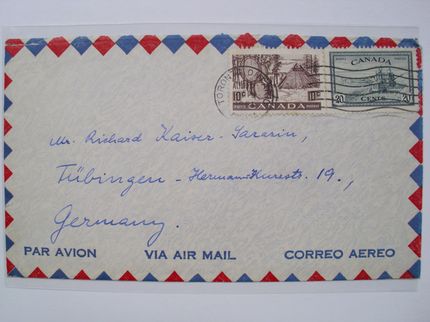 TORONTO
10¢ 10¢
CANADA
CANADA
20 CENTS 20
Mr. Richard Kaiser-Sararin,
Tübingen - Hermann-Kurzstr. 19.,
Germany.
PAR AVION VIA AIR MAIL CORREO AEREO